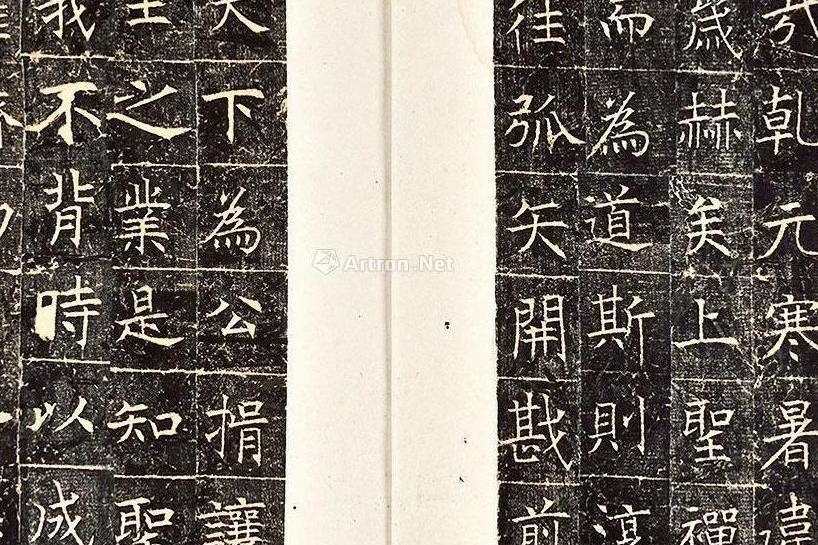 乾元寒暑違
歲赫矣上聖禪
而為道斯則淳
往弧矢開戡前
天下為公捐讓
之業是知聖
我不背時以成
Artron.Net